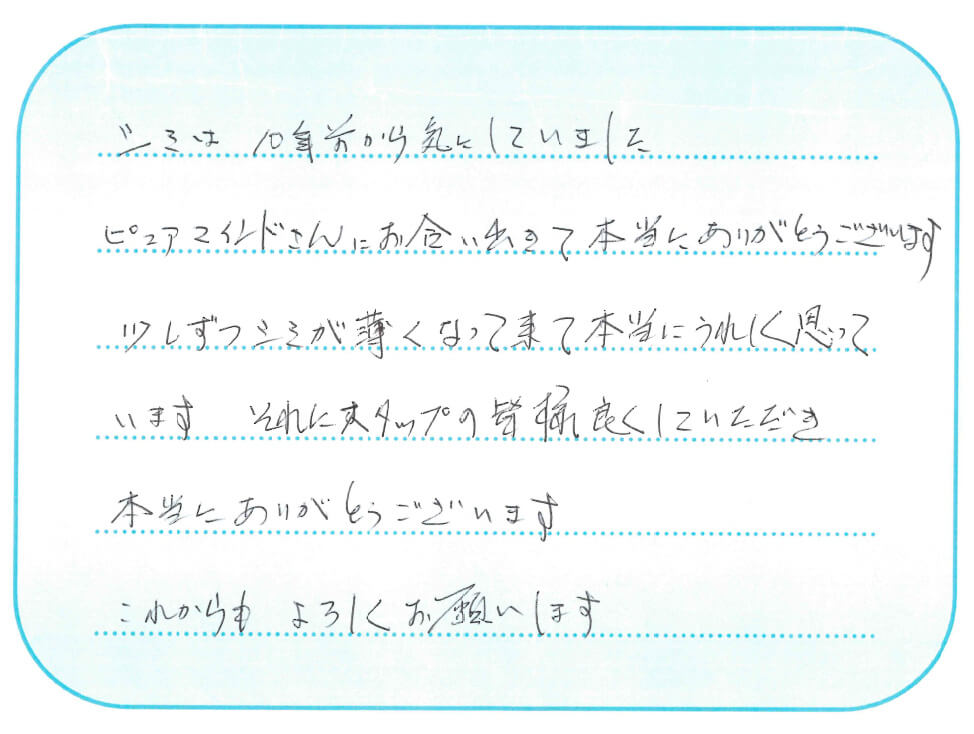 シミは 10年前から気にしていました
ピュアマインドさんにお会い出きて本当にありがとうございます
少しずつシミが薄くなって来て本当にうれしく思って
います それにスタッフの皆様良くしていただき
本当にありがとうございます
これからも よろしくお願いします